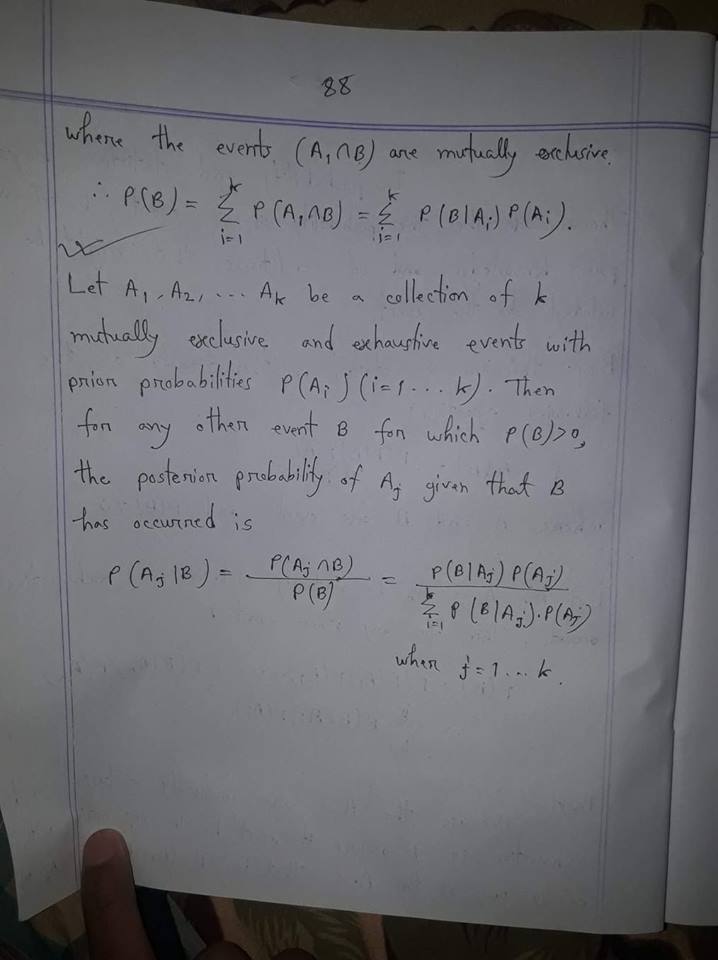 88
where the events (A₁∩B) are mutually exclusive.
∴ P(B) = ∑ᵢ₌₁ᵏ P(A₁∩B) = ∑ᵢ₌₁ᵏ P(B|Aᵢ) P(Aᵢ).
Let A₁, A₂, ... Aₖ be a collection of k
mutually exclusive and exhaustive events with
prior probabilities P(Aᵢ) (i=1 ... k). Then
for any other event B for which P(B)>0,
the posterior probability of Aⱼ given that B
has occurred is
P(Aⱼ|B) = P(Aⱼ∩B) / P(B) = P(B|Aⱼ) P(Aⱼ) / ∑ᵢ₌₁ᵏ P(B|Aⱼ).P(Aⱼ)
wher j=1 ... k.